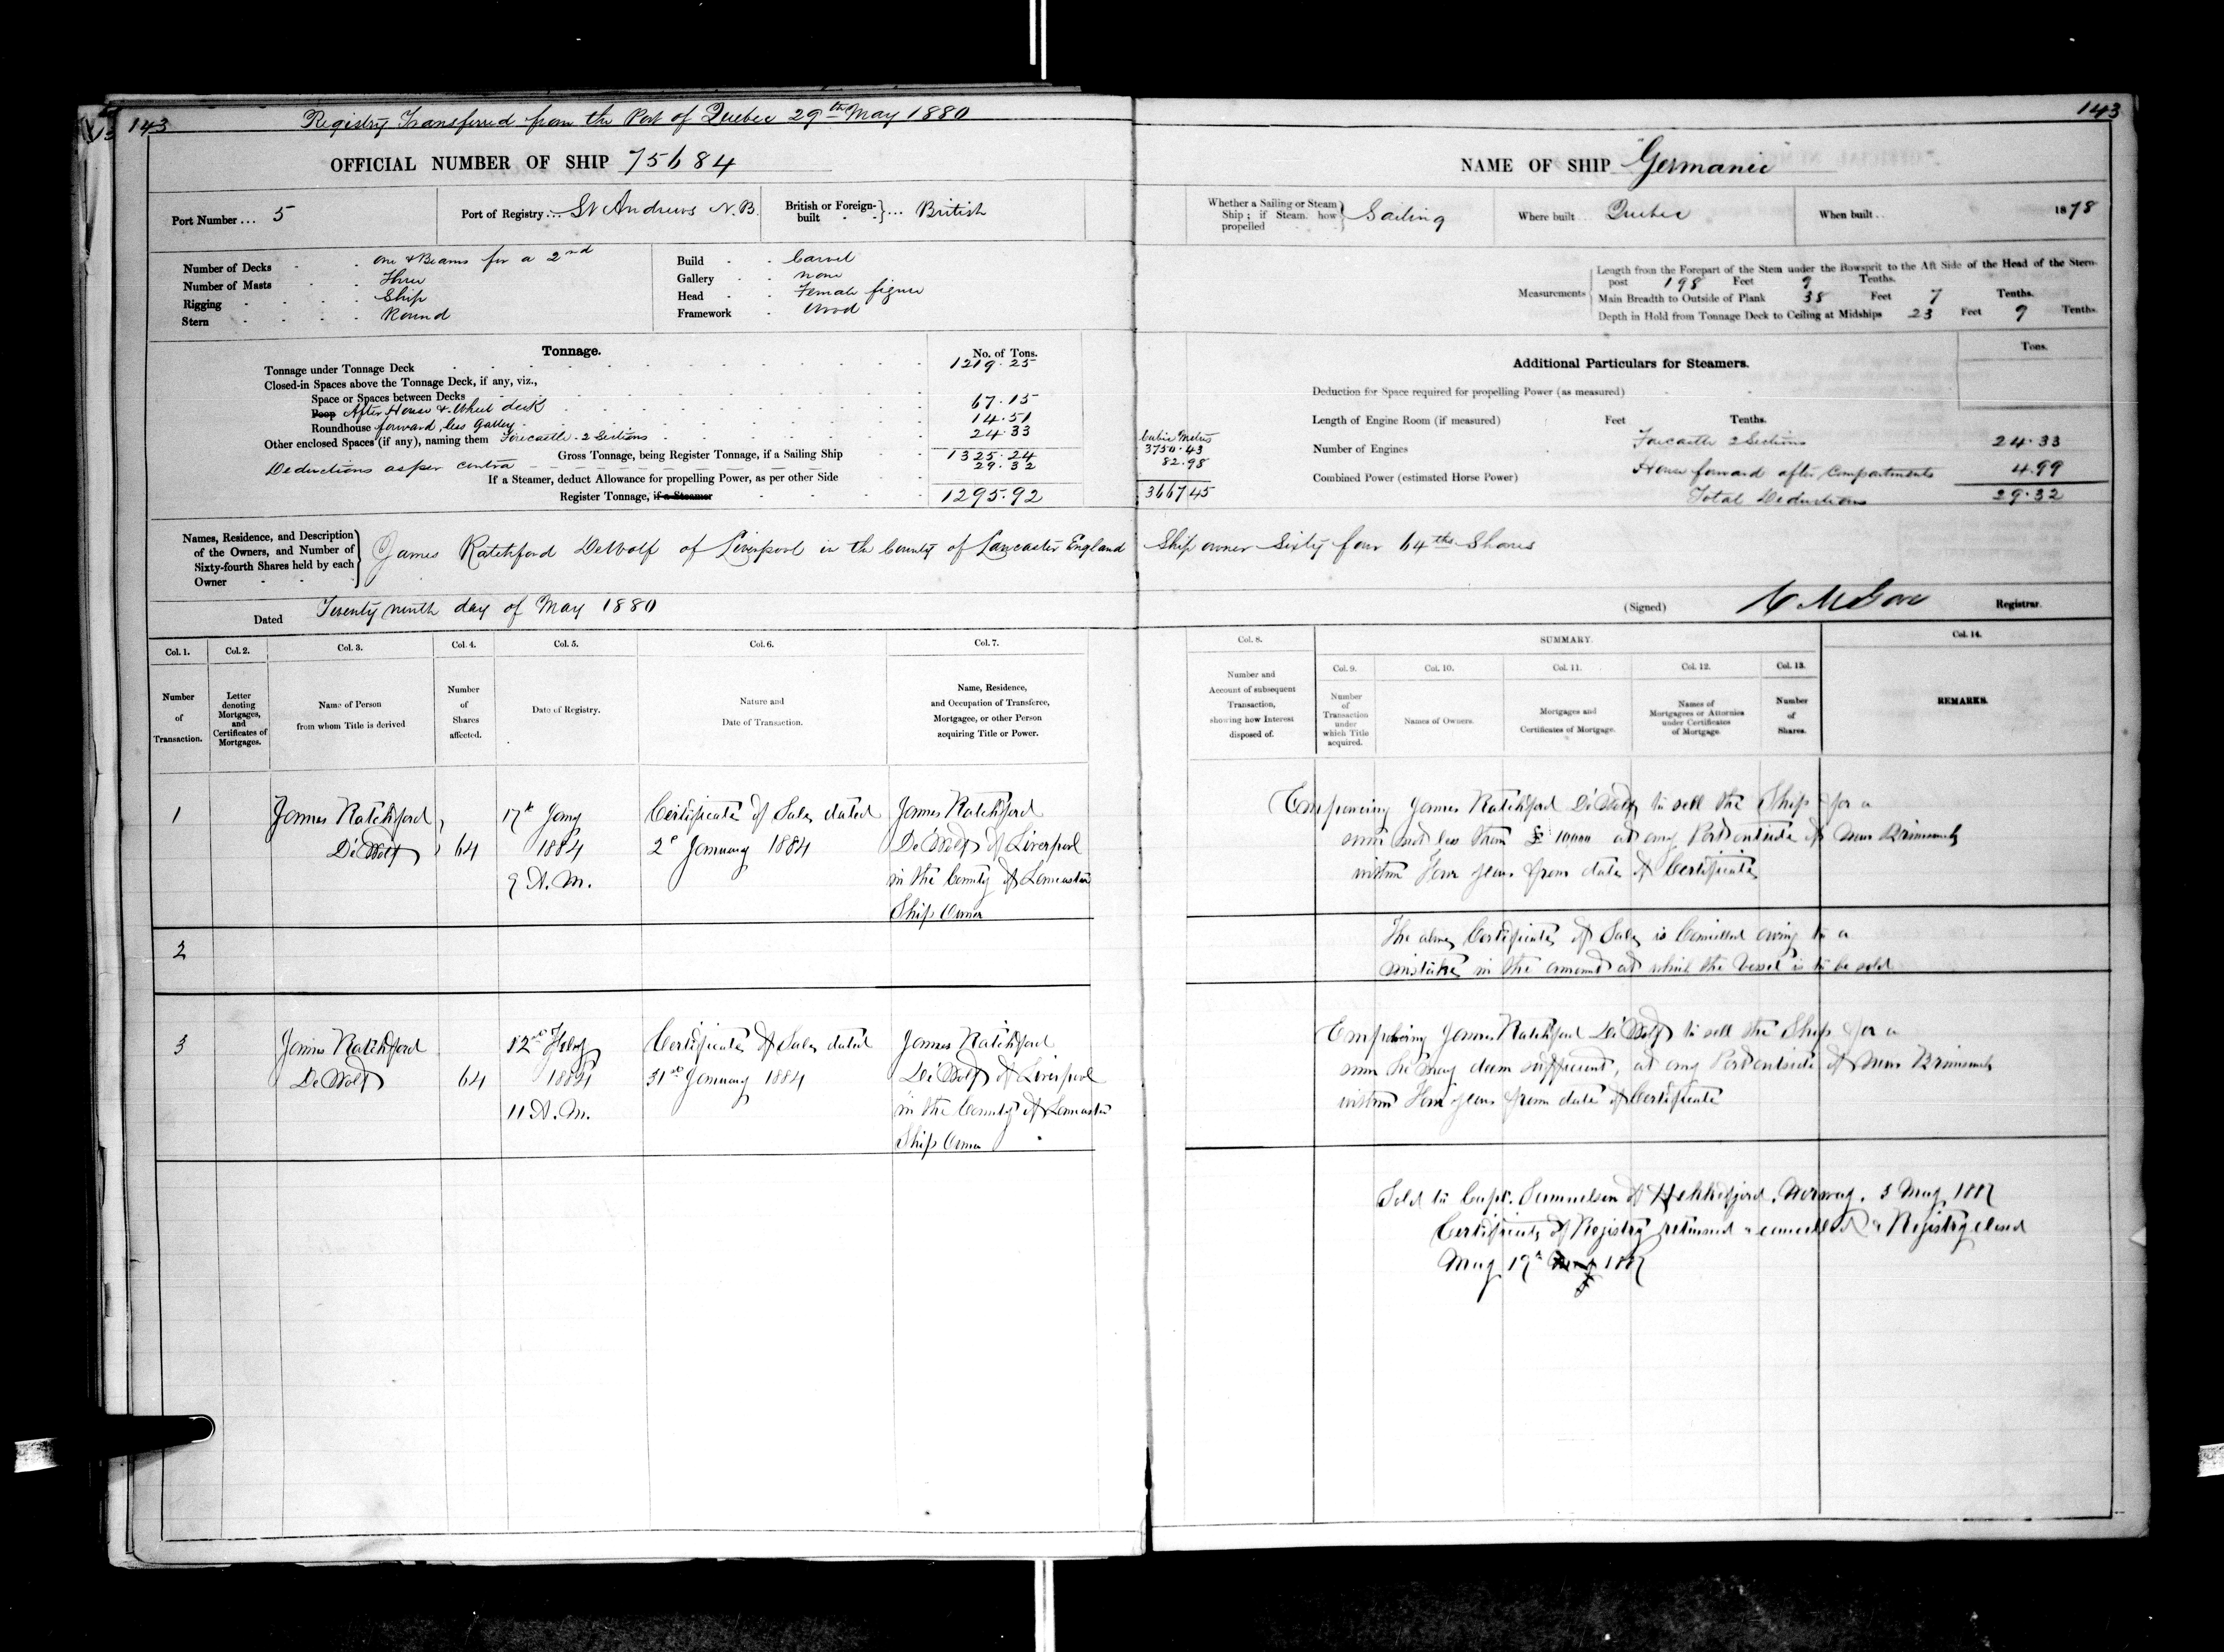 143
Registry Transferred from the Port of Quebec 29th May 1880
OFFICIAL NUMBER OF SHIP 75684
Port Number ... 5
Port of Registry ... St Andrews N.B.
British or Foreign-built } ... British
Number of Decks one & Beams for a 2nd
Number of Masts Three
Rigging Ship
Stern Round
Build Carvel
Gallery none
Head Female figure
Framework Wood
Tonnage. No. of Tons.
Tonnage under Tonnage Deck 1219.25
Closed-in Spaces above the Tonnage Deck, if any, viz.,
Space or Spaces between Decks
Poop After House & Wheel deck 67.15
Roundhouse forward, less Galley 14.51
Other enclosed Spaces (if any), naming them Forecastle. 2 Sections 24.33
Gross Tonnage, being Register Tonnage, if a Sailing Ship 1325.24
Deductions as per contra 29.32
If a Steamer, deduct Allowance for propelling Power, as per other Side
Register Tonnage, if a Steamer 1295.92
Names, Residence, and Description of the Owners, and Number of Sixty-fourth Shares held by each Owner
James Ratchford DeWolf of Liverpool in the County of Lancaster England
Dated Twenty ninth day of May 1880
Col. 1. Col. 2. Col. 3. Col. 4. Col. 5. Col. 6. Col. 7.
Number of Transaction.
Letter denoting Mortgages, and Certificates of Mortgages.
Name of Person from whom Title is derived
Number of Shares affected.
Date of Registry.
Nature and Date of Transaction.
Name, Residence, and Occupation of Transferee, Mortgagee, or other Person acquiring Title or Power.
1 James Ratchford 17th Jany Certificate of Sale dated James Ratchford
DeWolf 64 1884 2d January 1884 DeWolf of Liverpool
9 A.M. in the County of Lancaster
Ship Owner
2
3 James Ratchford 12th Feby Certificate of Sale dated James Ratchford
DeWolf 64 1884 31st January 1884 DeWolf of Liverpool
11 A.M. in the County of Lancaster
Ship Owner
143
NAME OF SHIP "Germanic"
Whether a Sailing or Steam Ship; if Steam, how propelled } Sailing
Where built Quebec
When built 1878
Measurements
Length from the Forepart of the Stem under the Bowsprit to the Aft Side of the Head of the Stern-
post 198 Feet 9 Tenths.
Main Breadth to Outside of Plank 38 Feet 7 Tenths.
Depth in Hold from Tonnage Deck to Ceiling at Midships 23 Feet 9 Tenths.
Tons.
Additional Particulars for Steamers.
Deduction for Space required for propelling Power (as measured)
Length of Engine Room (if measured) Feet Tenths.
Cubic Metres
3750.43
82.98
3667.45
Number of Engines
Forecastle 2 Sections 24.33
House forward after Compartments 4.99
Combined Power (estimated Horse Power)
Total Deductions 29.32
Ship owner Sixty four 64ths Shares
(Signed) Registrar.
Col. 8. SUMMARY. Col. 14.
Col. 9. Col. 10. Col. 11. Col. 12. Col. 13.
Number and Account of subsequent Transaction, showing how Interest disposed of.
Number of Transaction under which Title acquired.
Names of Owners.
Mortgages and Certificates of Mortgage.
Names of Mortgagees or Attornies under Certificates of Mortgage.
Number of Shares.
REMARKS.
Empowering James Ratchford DeWolf to sell the Ship for a
sum not less than £ 10,000 at any Port outside of New Brunswick
within Four years from date of Certificate
The above Certificate of Sale is Cancelled owing to a
mistake in the amount at which the Vessel is to be sold
Empowering James Ratchford DeWolf to sell the Ship for a
sum he may deem sufficient, at any Port outside of New Brunswick
within Four years from date of Certificate
Sold to Capt. Samuelsen of Norway, 3 May 1887
Certificate of Registry returned & cancelled & Registry closed
May 19th 1887